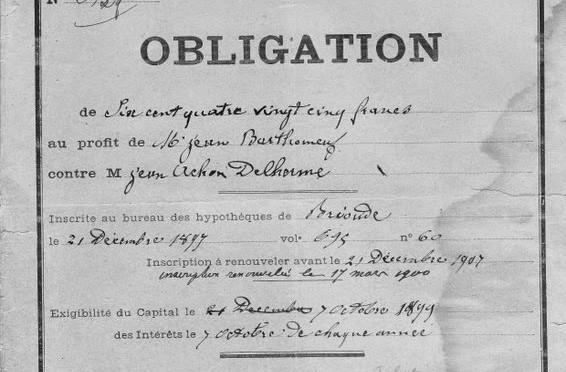 N°
OBLIGATION
de Six cent quatre vingt cinq francs
au profit de Mr jean Barthomeuf
contre M jean Achon Delhorme
Inscrite au bureau des hypothèques de Brioude
le 21 Décembre 1897 vol. 695 n° 60
Inscription à renouveler avant le 21 Décembre 1907
inscription renouvelée le 17 mars 1900
Exigibilité du Capital le 21 Décembre 7 Octobre 1899
des Intérêts le 7 Octobre de chaque année